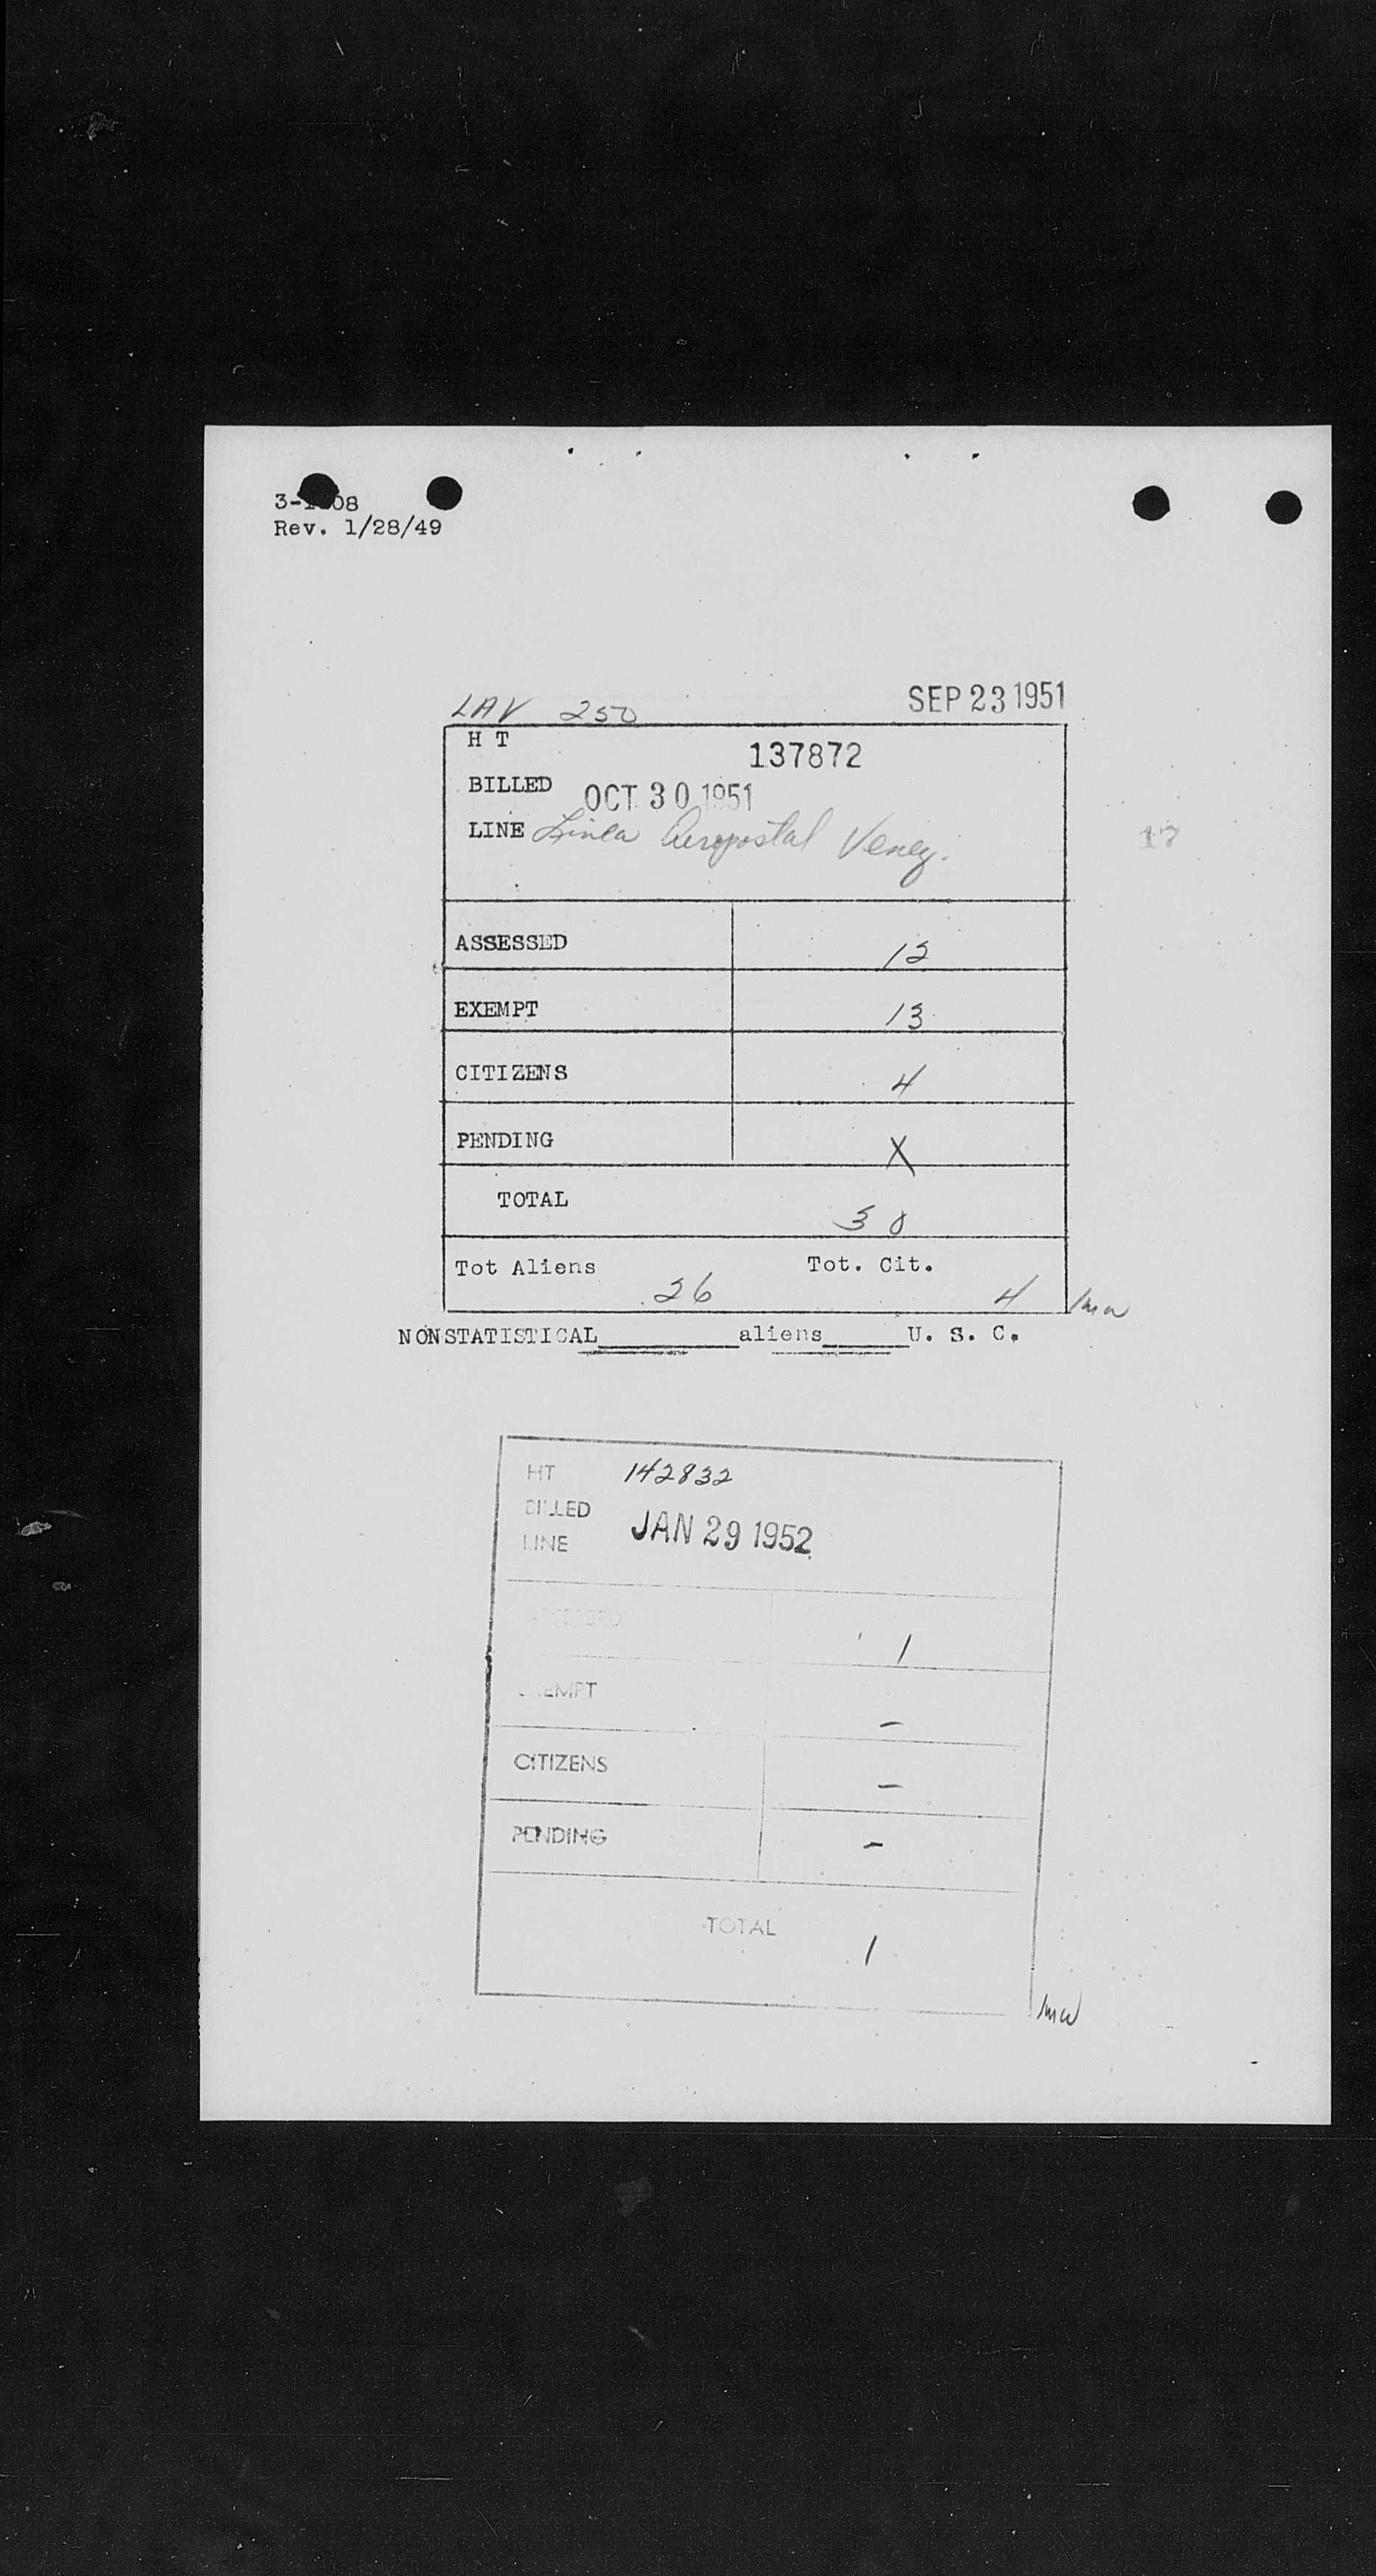 Rev. 1/28/49
LAV 250 SEP 23 1951
H T 137872
BILLED OCT 30 1951
LINE Linea Aeropostal Venez.
17
ASSESSED 12
EXEMPT 13
CITIZENS 4
PENDING X
TOTAL 30
Tot Aliens 26 Tot. Cit. 4
NONSTATISTICAL aliens U. S. C.
HT 142832
BILLED
LINE JAN 29 1952
ASSESSED 1
EXEMPT -
CITIZENS -
PENDING -
TOTAL 1